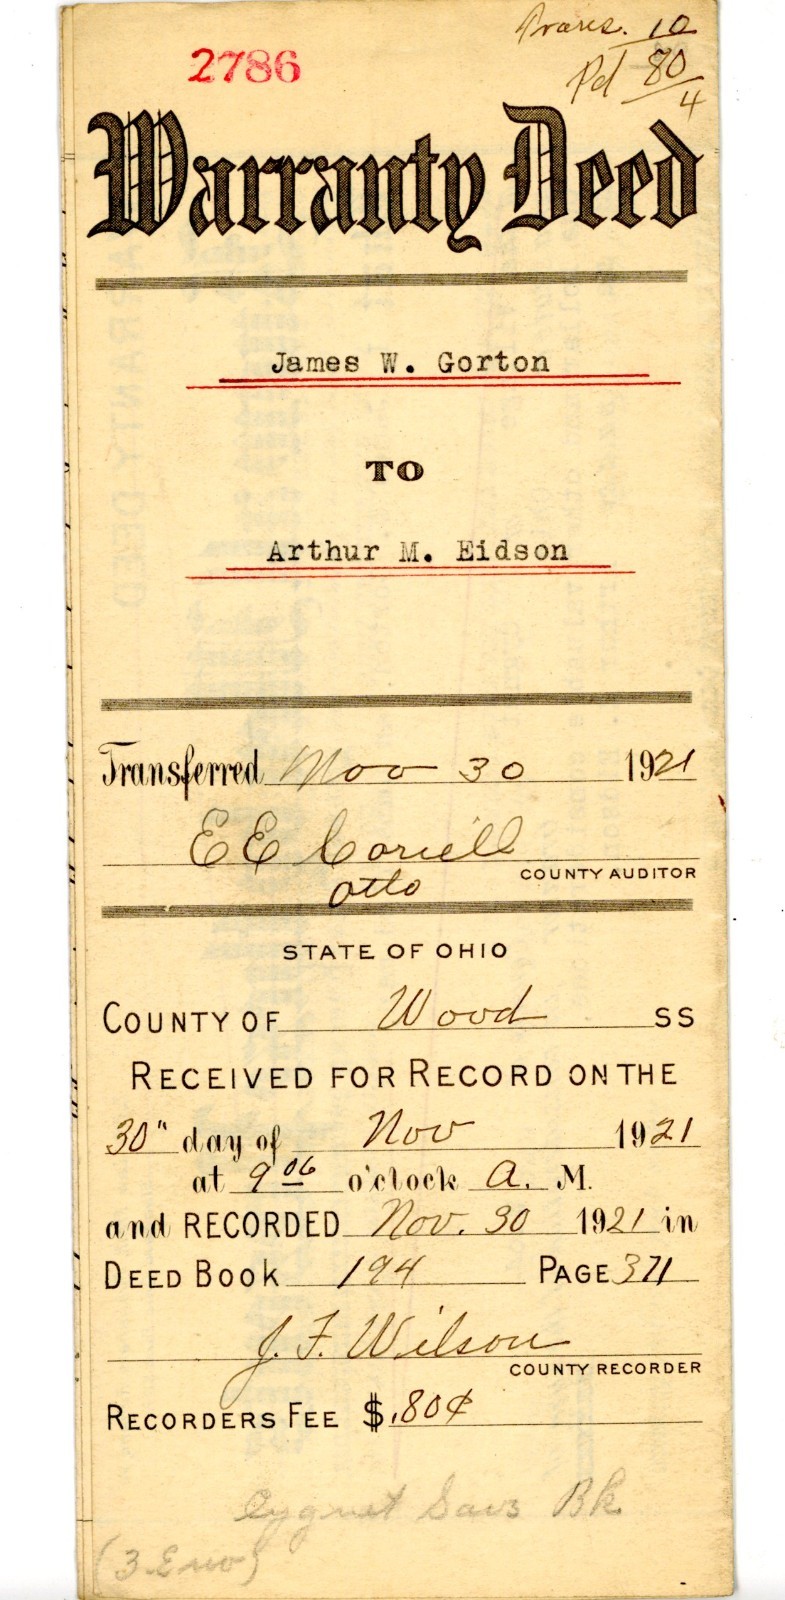 2786
Trans. 10
Pd 80
4
Warranty Deed
James W. Gorton
TO
Arthur M. Eidson
Transferred Nov 30 1921
E E Coriell
COUNTY AUDITOR
Otto
STATE OF OHIO
COUNTY OF Wood SS
RECEIVED FOR RECORD ON THE
30" day of Nov 1921
at 9 06 o'clock A. M.
and RECORDED Nov. 30 1921 in
DEED BOOK 194 PAGE 371
J. F. Wilson
COUNTY RECORDER
RECORDERS FEE $.80¢
Cygnet Savs Bk
(3